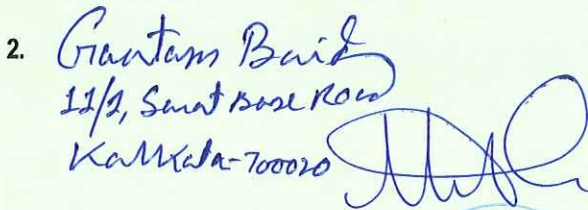 2. Gautam Baid
11/2, Sarat Bose Road
Kolkata-700020